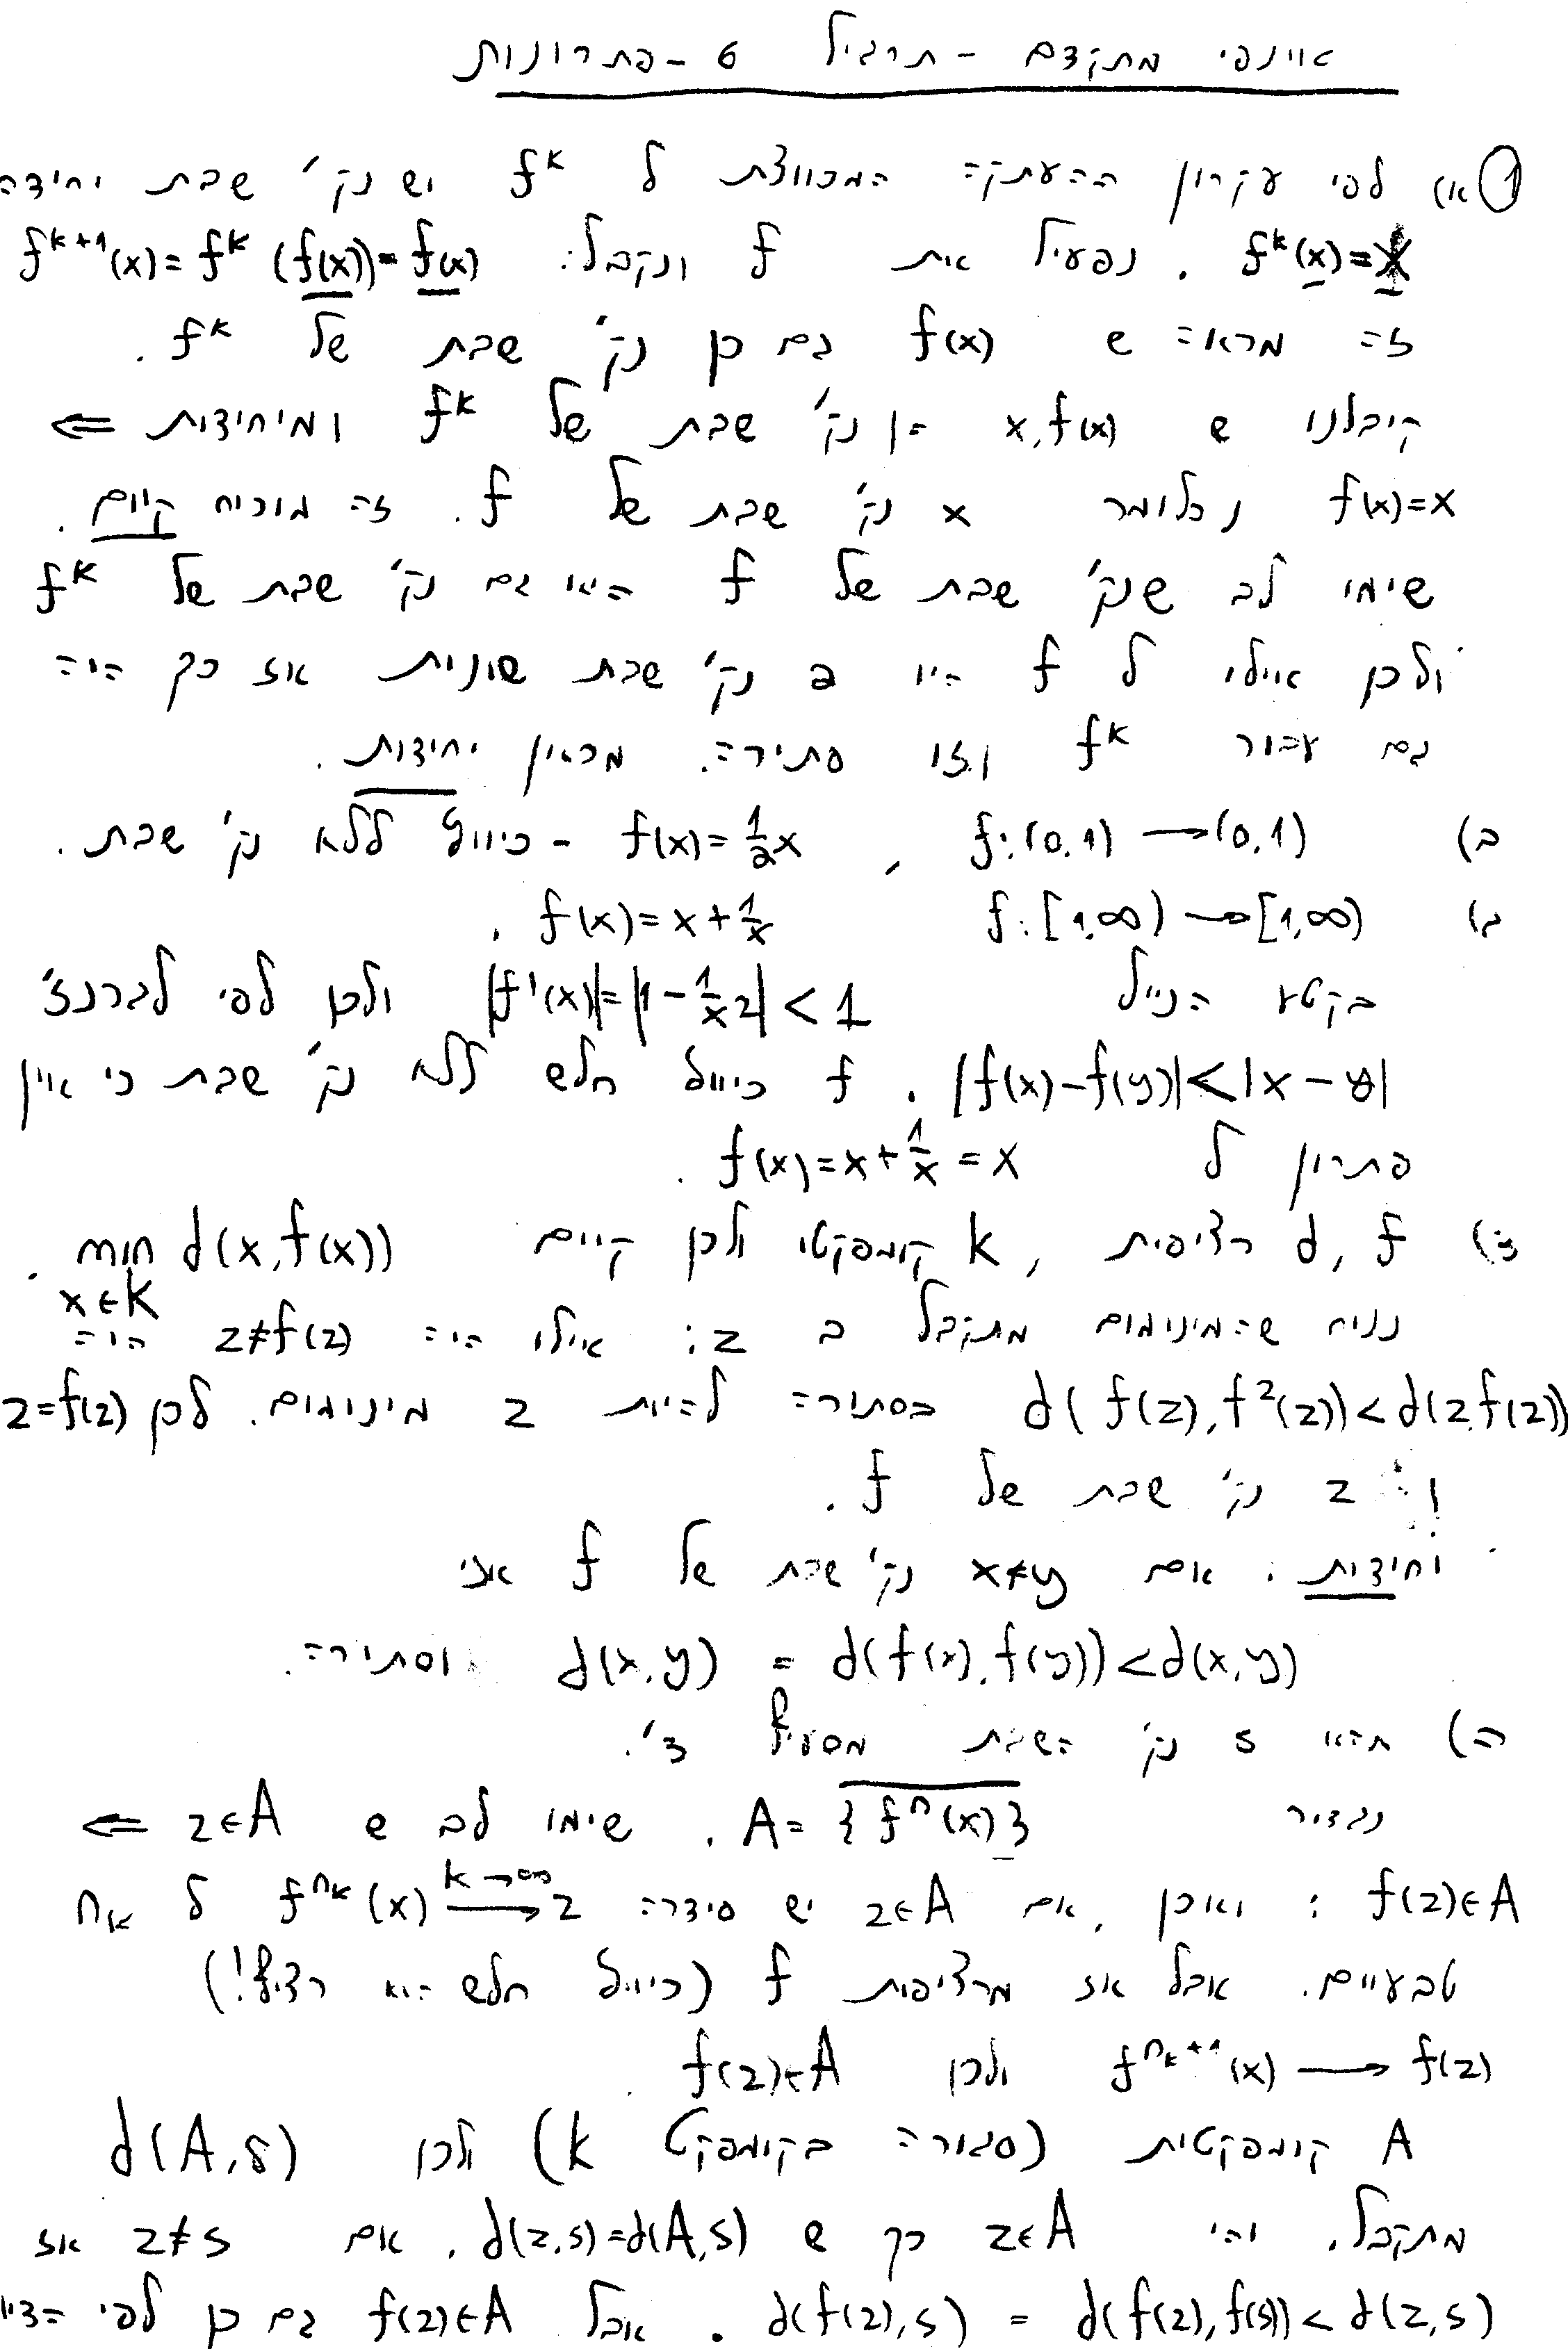 אינפי מתקדם - תרגיל 6 - פתרונות
① א) לפי עקרון ההעתקה המכווצת ל f^k יש נק' שבת יחידה
f^k(x)=x . נפעיל את f ונקבל: f^{k+1}(x)=f^k(f(x))=f(x)
זה מראה ש f(x) גם כן נק' שבת של f^k.
קיבלנו ש x,f(x) הן נק' שבת של f^k ומיחידות ⇐
f(x)=x , כלומר x נק' שבת של f. זה מוכיח קיום.
שימו לב שנק' שבת של f היא גם נק' שבת של f^k
ולכן אילו ל f היו 2 נק' שבת שונות אז כך היה
גם עבור f^k וזו סתירה. מכאן יחידות.
ב) f:(0,1)→(0,1) , f(x)=½x - כיווץ ללא נק' שבת.
ג) f:[1,∞)→[1,∞) , f(x)=x+1/x
בקטע הנ"ל |f'(x)|=|1-1/x²|<1 ולכן לפי לגרנז'
|f(x)-f(y)|<|x-y| . f כיווץ חלש ללא נק' שבת כי אין
פתרון ל f(x)=x+1/x=x .
ד) d, f רציפות, K קומפקטי ולכן קיים min_{x∈K} d(x,f(x)) .
נניח שהמינימום מתקבל ב z: אילו היה z≠f(z) היה
d(f(z),f²(z))<d(z,f(z)) בסתירה להיות z מינימום. לכן z=f(z)
ו z נק' שבת של f.
יחידות: אם x≠y נק' שבת של f אזי
d(x,y) = d(f(x),f(y))<d(x,y) וסתירה.
ה) תהא s נק' השבת מסעיף ד'.
נגדיר A= \overline{{f^n(x)}} . שימו לב ש z∈A ⇐
f(z)∈A : ואכן, אם z∈A יש סידרה f^{n_k}(x) \xrightarrow{k→∞} z ל n_k
טבעיים. אבל אז מרציפות f (כיווץ חלש הוא רציף!)
f^{n_k+1}(x)→f(z) ולכן f(z)∈A .
A קומפקטית (סגורה בקומפקט K) ולכן d(A,s)
מתקבל, יהי z∈A כך ש d(z,s)=d(A,s) . אם z≠s אז
d(f(z),s) = d(f(z),f(s))<d(z,s) . אבל f(z)∈A גם כן לפי